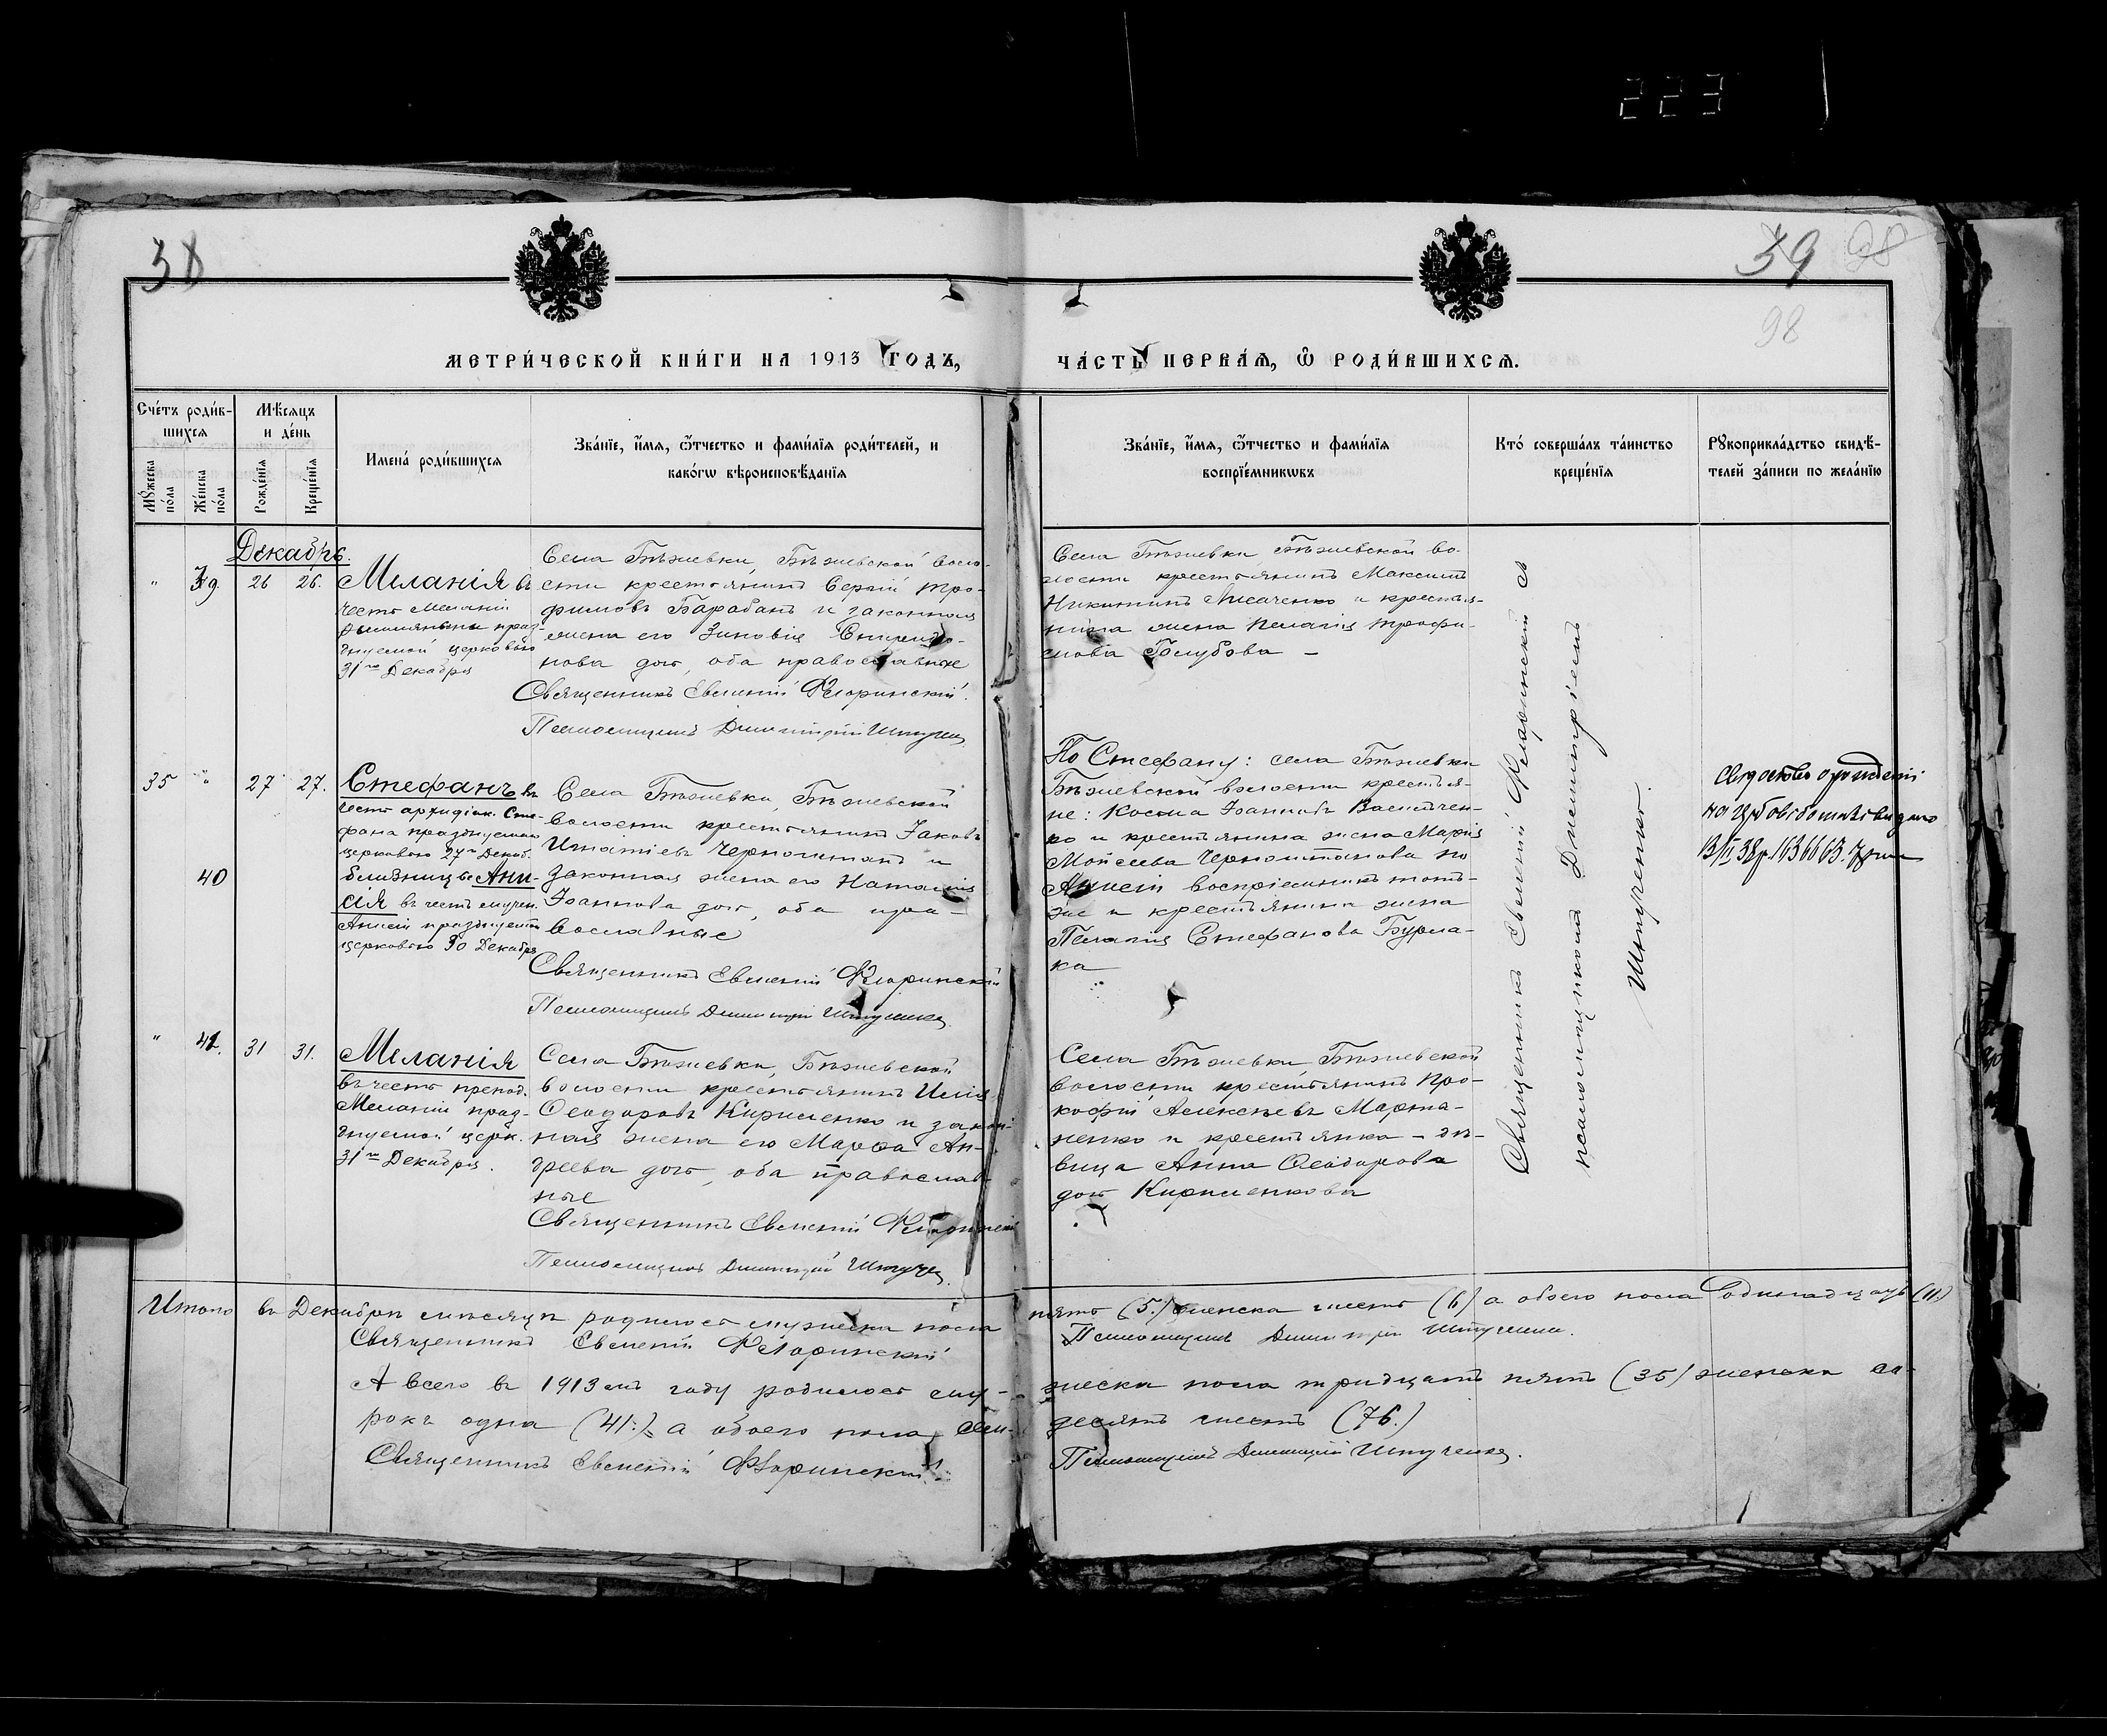 223
38
39 98
98
МЕТРИ́ЧЕСКОЙ КНИ́ГИ НА 1913 ГОДЪ,
ЧА́СТЬ ПЕ́РВАѦ, Ѿ РОДИ́ВШИХСѦ.
Сче́тъ роди́в-
шихсѧ
Мꙋ́жеска по́ла
Же́нска по́ла
Мѣ́сѧцъ
и де́нь
Рожде́нїѧ
Креще́нїѧ
Имена̀ роди́вшихсѧ
Зва́нїе, и҆́мѧ, ѻ҆́тчество и фами́лїѧ роди́телей, и
како́гѡ вѣроисповѣ́данїѧ
Зва́нїе, и҆́мѧ, ѻ҆́тчество и фами́лїѧ
воспрїе́мникѡвъ
Кто̀ соверша́лъ та́инство
креще́нїѧ
Рꙋкоприкла́дство свидѣ́-
телей за́писи по жела́нїю
Декабрь.
" 39. 26 26.
Меланія въ
честь Меланіи
Римляныни празд-
нуемой церковью
31го Декабря
Села Бѣжевки, Бѣжевской воло-
сти крестьянинъ Сергій Тро-
фимовъ Барабанъ и законная
жена его Зиновія Спиридо-
нова дочь, оба православные
Священникъ Евгеній Флоринскій.
Псаломщикъ Димитрій Штученко
Села Бѣжевки Бѣжевской во-
лости крестьянинъ Максимъ
Никитинъ Лисаченко и крестья-
нина жена Пелагія Трофи-
мова Голубова –
35 " 27 27.
40
Стефанъ въ
честь архидіак. Сте-
фана празднуемаго
церковью 27го Декаб.
близницы Ани-
сія въ честь мучен.
Анисіи празднуемой
церковью 30 Декабря
Села Бѣжевки, Бѣжевской
волости крестьянинъ Іаковъ
Игнатіевъ Черноштанъ и
законная жена его Наталія
Іоаннова дочь, оба пра-
вославные
Священникъ Евгеній Флоринскій
Псаломщикъ Димитрій Штученко
По Стефану: села Бѣжевки
Бѣжевской волости крестья-
не: Косма Іоанновъ
ко и крестьянина жена Марія
Моисеева Черноштанова по
Анисіи воспріемникъ тотъ-
же и крестьянина жена
Пелагія Стефанова Бурла-
ка
13/II 38р.
" 41. 31 31.
Меланія
въ честь препод.
Меланіи празд-
нуемой церк.
31го Декабря.
Села Бѣжевки, Бѣжевской
волости крестьянинъ Илія
Ѳеодоровъ Кириленко и закон-
ная жена его Марѳа Ан-
дреева дочь, оба православ-
ные
Священникъ Евгеній Флоринскій
Псаломщикъ Димитрій Штученко
Села Бѣжевки, Бѣжевской
волости крестьянинъ Про-
кофій Алексѣевъ Марта-
ненко и крестьянка – дѣ-
вица Анна Ѳеодорова
дочь Кириленкова
Священникъ Евгеній Флоринскій съ
псаломщикомъ Димитріемъ
Штученко.
Итого въ Декабрѣ мѣсяцѣ родилось мужеска пола
пять (5.) женска шесть (6) а обоего пола одинадцать (11)
Священникъ Евгеній Флоринскій
Псаломщикъ Димитрій Штученко.
А всего въ 1913мъ году родилось му-
жеска пола тридцать пять (35) женска со-
рокъ одна (41.), а обоего пола сем-
десятъ шесть (76.)
Священникъ Евгеній Флоринскій
Псаломщикъ Димитрій Штученко.